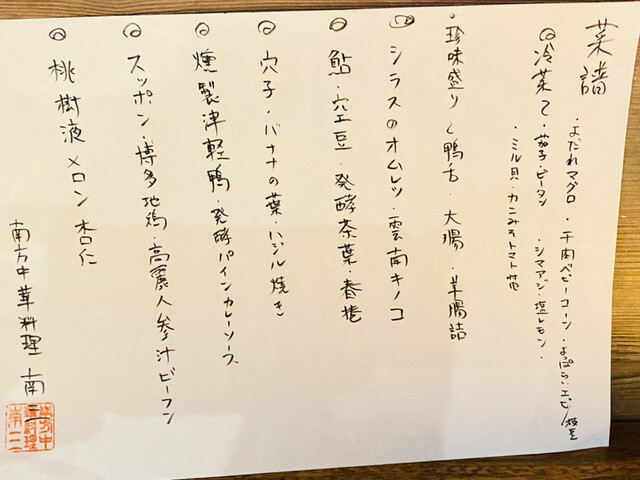 菜譜
・よだれマグロ・干肉ベビーコーン・よっぱらいエビ
◎冷菜て・茄子・ピータン・シマアジ・塩レモン・
・ミル貝・カニみそトマト
・珍味盛り て鴨舌 大腸・羊腸詰
◎シラスのオムレツ・雲南キノコ
◎鮎・空豆・発酵茶葉・春捲
◎穴子・バナナの葉・バジル焼き
◎燻製津軽鴨・発酵パインカレーソース
◎スッポン・博多地鶏 高麗人参汁ビーフン
◎桃樹液メロン 杏仁
南方中華料理 南三